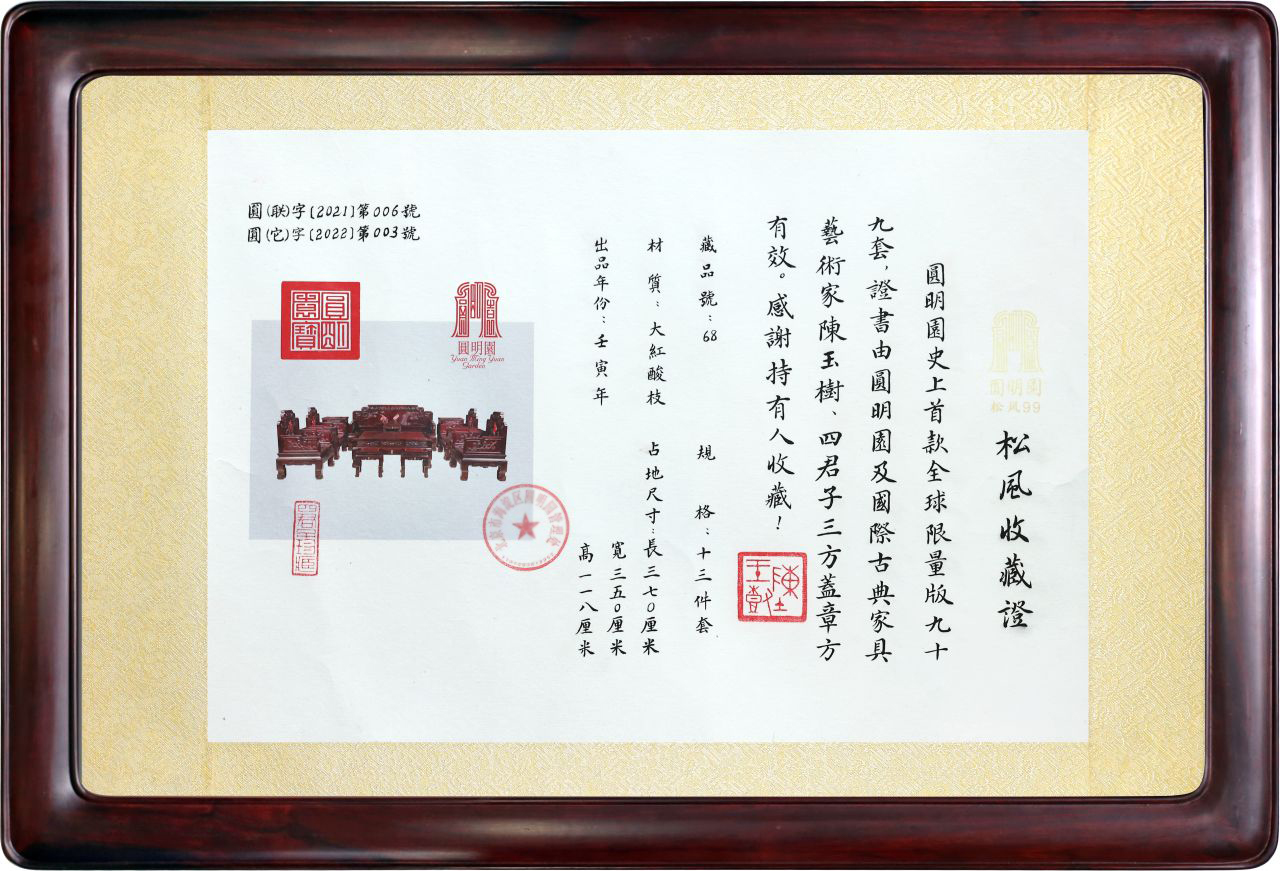 圓明園
松风99
松風收藏證
圓明園史上首款全球限量版九十
九套，證書由圓明園及國際古典家具
藝術家陳玉樹、四君子三方蓋章方
有效。感謝持有人收藏！
藏品號：68
規格：十三件套
材質：大紅酸枝
占地尺寸：長三七0厘米
寬三五0厘米
高一一八厘米
出品年份：壬寅年
圓(联)字[2021]第006號
圓(它)字[2022]第003號
圓明園
Yuan Ming Yuan
Garden
北京市海淀区圆明园管理处